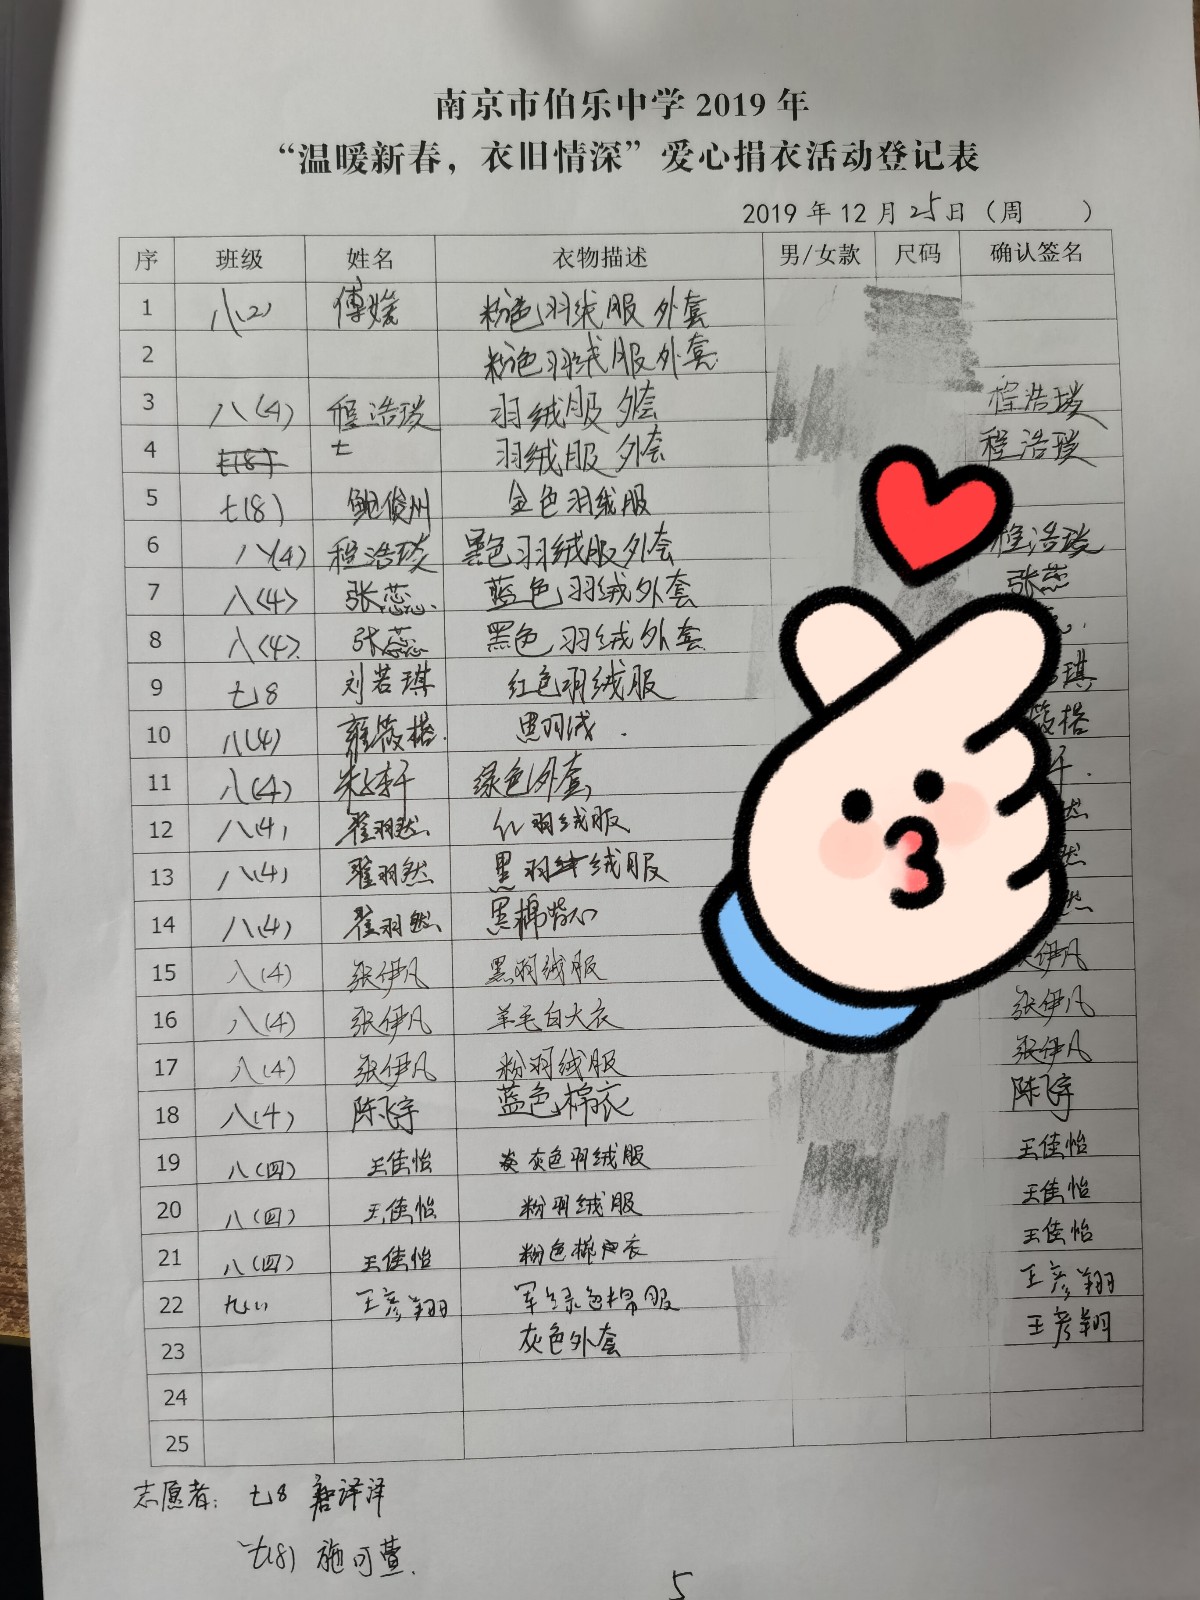 南京市伯乐中学 2019 年
“温暖新春，衣旧情深”爱心捐衣活动登记表
2019 年 12 月 25日（周 ）
序 班级 姓名 衣物描述 男/女款 尺码 确认签名
1 八(2) 傅媛 粉色羽绒服 外套
2 粉色羽绒服外套
3 八(4) 程浩琰 羽绒服 外套 程浩琰
4 羽绒服 外套 程浩琰
5 七(8) 鲍俊州 金色羽绒服
6 八(4) 程浩琰 黑色羽绒服外套 程浩琰
7 八(4) 张蕊 蓝色羽绒外套 张蕊
8 八(4) 张蕊 黑色羽绒外套
9 七8 刘若琪 红色羽绒服 琪
10 八(4) 筱格 黑羽绒 筱格
11 八(4) 朱轩 绿色外套
12 八(4) 翟羽然 红羽绒服 然
13 八(4) 翟羽然 黑羽绒服 然
14 八(4) 翟羽然 黑棉背心 然
15 八(4) 张伊凡 黑羽绒服 张伊凡
16 八(4) 张伊凡 羊毛白大衣 张伊凡
17 八(4) 张伊凡 粉羽绒服 张伊凡
18 八(4) 陈飞宇 蓝色棉衣 陈飞宇
19 八(四) 王佳怡 灰色羽绒服 王佳怡
20 八(四) 王佳怡 粉羽绒服 王佳怡
21 八(四) 王佳怡 粉色棉衣 王佳怡
22 九(1) 王彦翔 军绿色棉服 王彦翔
23 灰色外套 王彦翔
24
25
志愿者: 七8 唐译泽
七(8) 施可萱.
5